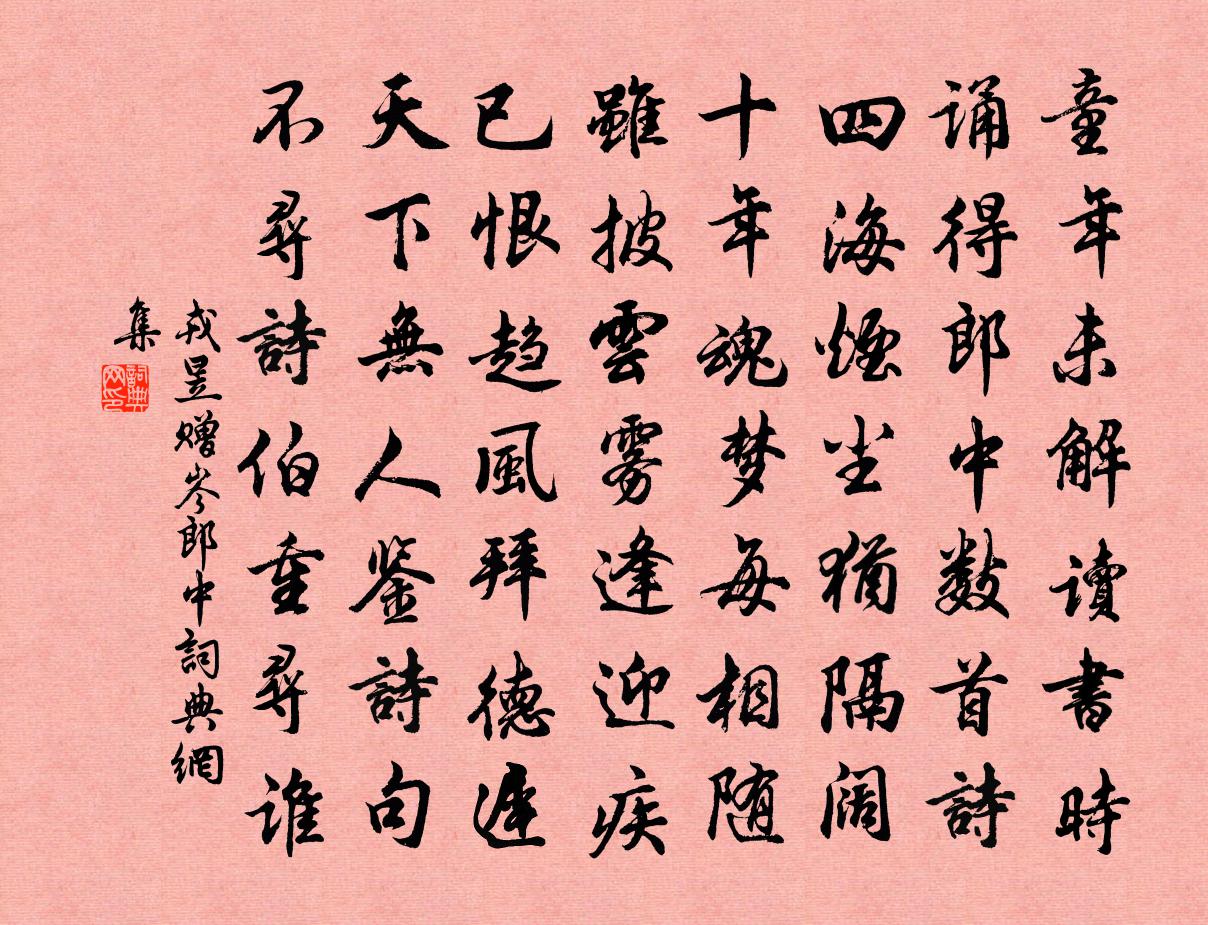 童年未解读書時
诵得郎中数首詩
四海煙尘猶隔阔
十年魂梦每相随
雖披雲雾逢迎疾
已恨趋風拜德遲
天下無人鉴詩句
不尋詩伯重尋谁
戎昱赠岑郎中詞典網
集
詞典网印